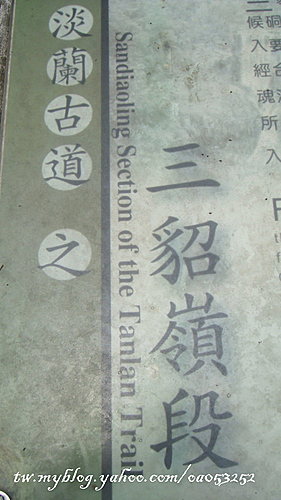 淡蘭古道 之
Sandiaoling Section of the Tanlan Trail
三貂嶺段
三
候硐
入要
經台
魂
所
入
tw.myblog.yahoo.com/oa053252